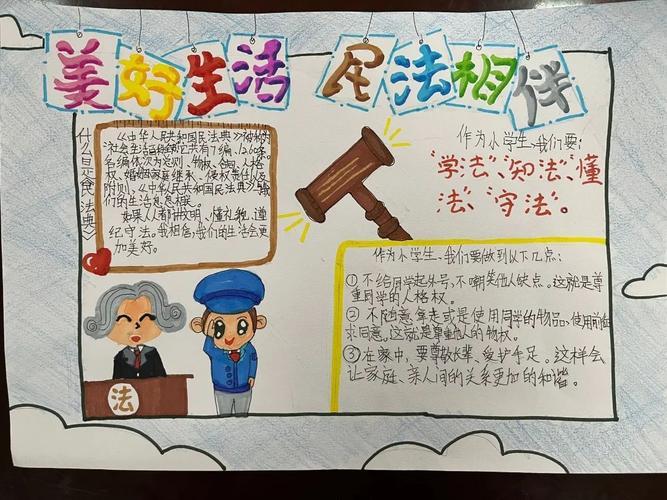 美好生活 民法相伴
什么是《民法典》
《中华人民共和国民法典》被称为
"社会生活百科全书"共有7编、1260条,
各编依次为总则、物权、合同、人格
权、婚姻家庭、继承、侵权责任以及
附则。《中华人民共和国民法典》与我
们的生活息息相关。
如果人人都讲文明、懂礼貌、遵
纪守法。我相信,我们的生活会更
加美好。
法
作为小学生、我们要:
"学法"、"知法"、"懂
法"、"守法"。
作为小学生、我们要做到以下几点:
① 不给同学起外号,不嘲笑他人缺点。这就是尊
重同学的人格权。
② 不随意拿走或是使用同学的物品,使用前征
求同意。这就是尊重他人的物权。
③ 在家中,要尊敬长辈、爱护手足。这样会
让家庭、亲人间的关系更加的和谐。